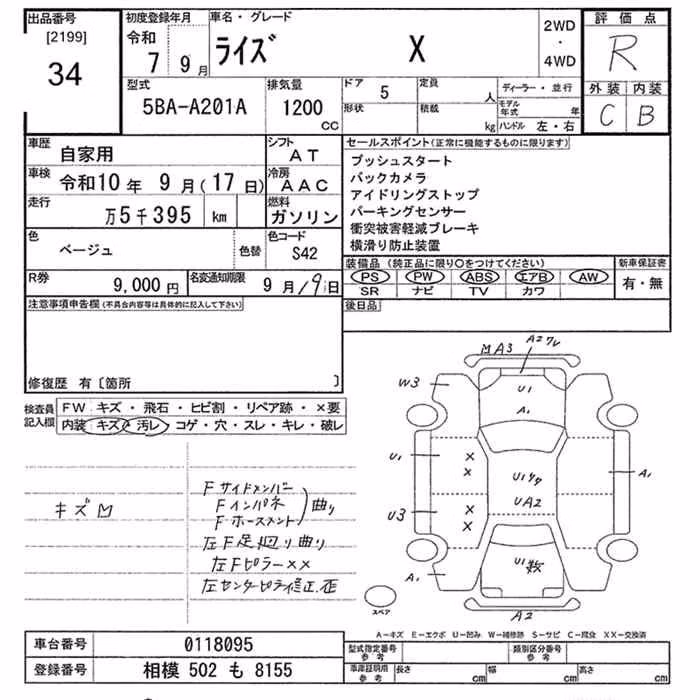 出品番号 初度登録年月 車名・グレード 2WD・4WD 評価点
[2199] 令和 7 9月 ライズ X R
34 型式 排気量 ドア 5 定員 人 ディーラー・並行 外装 内装
5BA-A201A 1200 cc 形状 積載 kg モデル年式 年 ハンドル 左・右 C B
車歴 自家用 シフト AT セールスポイント(正常に機能するものに限ります)
車検 令和10年 9月(17日) 冷房 AAC
走行 万5千395 km 燃料 ガソリン
プッシュスタート
バックカメラ
アイドリングストップ
パーキングセンサー
衝突被害軽減ブレーキ
横滑り防止装置
色 ベージュ 色替 色コード S42
装備品(純正品に限り○をつけてください) 新車保証書
PS PW ABS エアB AW 有・無
SR ナビ TV カワ
R券 9,000円 名変通知期限 9月19日
後日品
注意事項申告欄(不具合内容等は具体的に記入して下さい)
修復歴 有〔箇所 〕
検査員記入欄 FW キズ・飛石・ヒビ割・リペア跡・×要
内装 キズ・汚レ・コゲ・穴・スレ・キレ・破レ
キズM
Fサイドメンバー
Fインパネ 曲り
Fホースメント
左F足廻り曲り
左Fピラー××
左センターピラ修正.歪
MA3 A2ワレ
W3 U1
A1
U1 × × U1 A1
UA2
U3 × ×
A1 U1 数
A2
スペア
A-キズ E-エクボ U-凹み W-補修跡 S-サビ C-腐食 XX-交換済
車台番号 0118095
登録番号 相模 502 も 8155
型式指定番号 参考 類別区分番号 参考
車庫証明用 参考 長さ cm 幅 cm 高さ cm